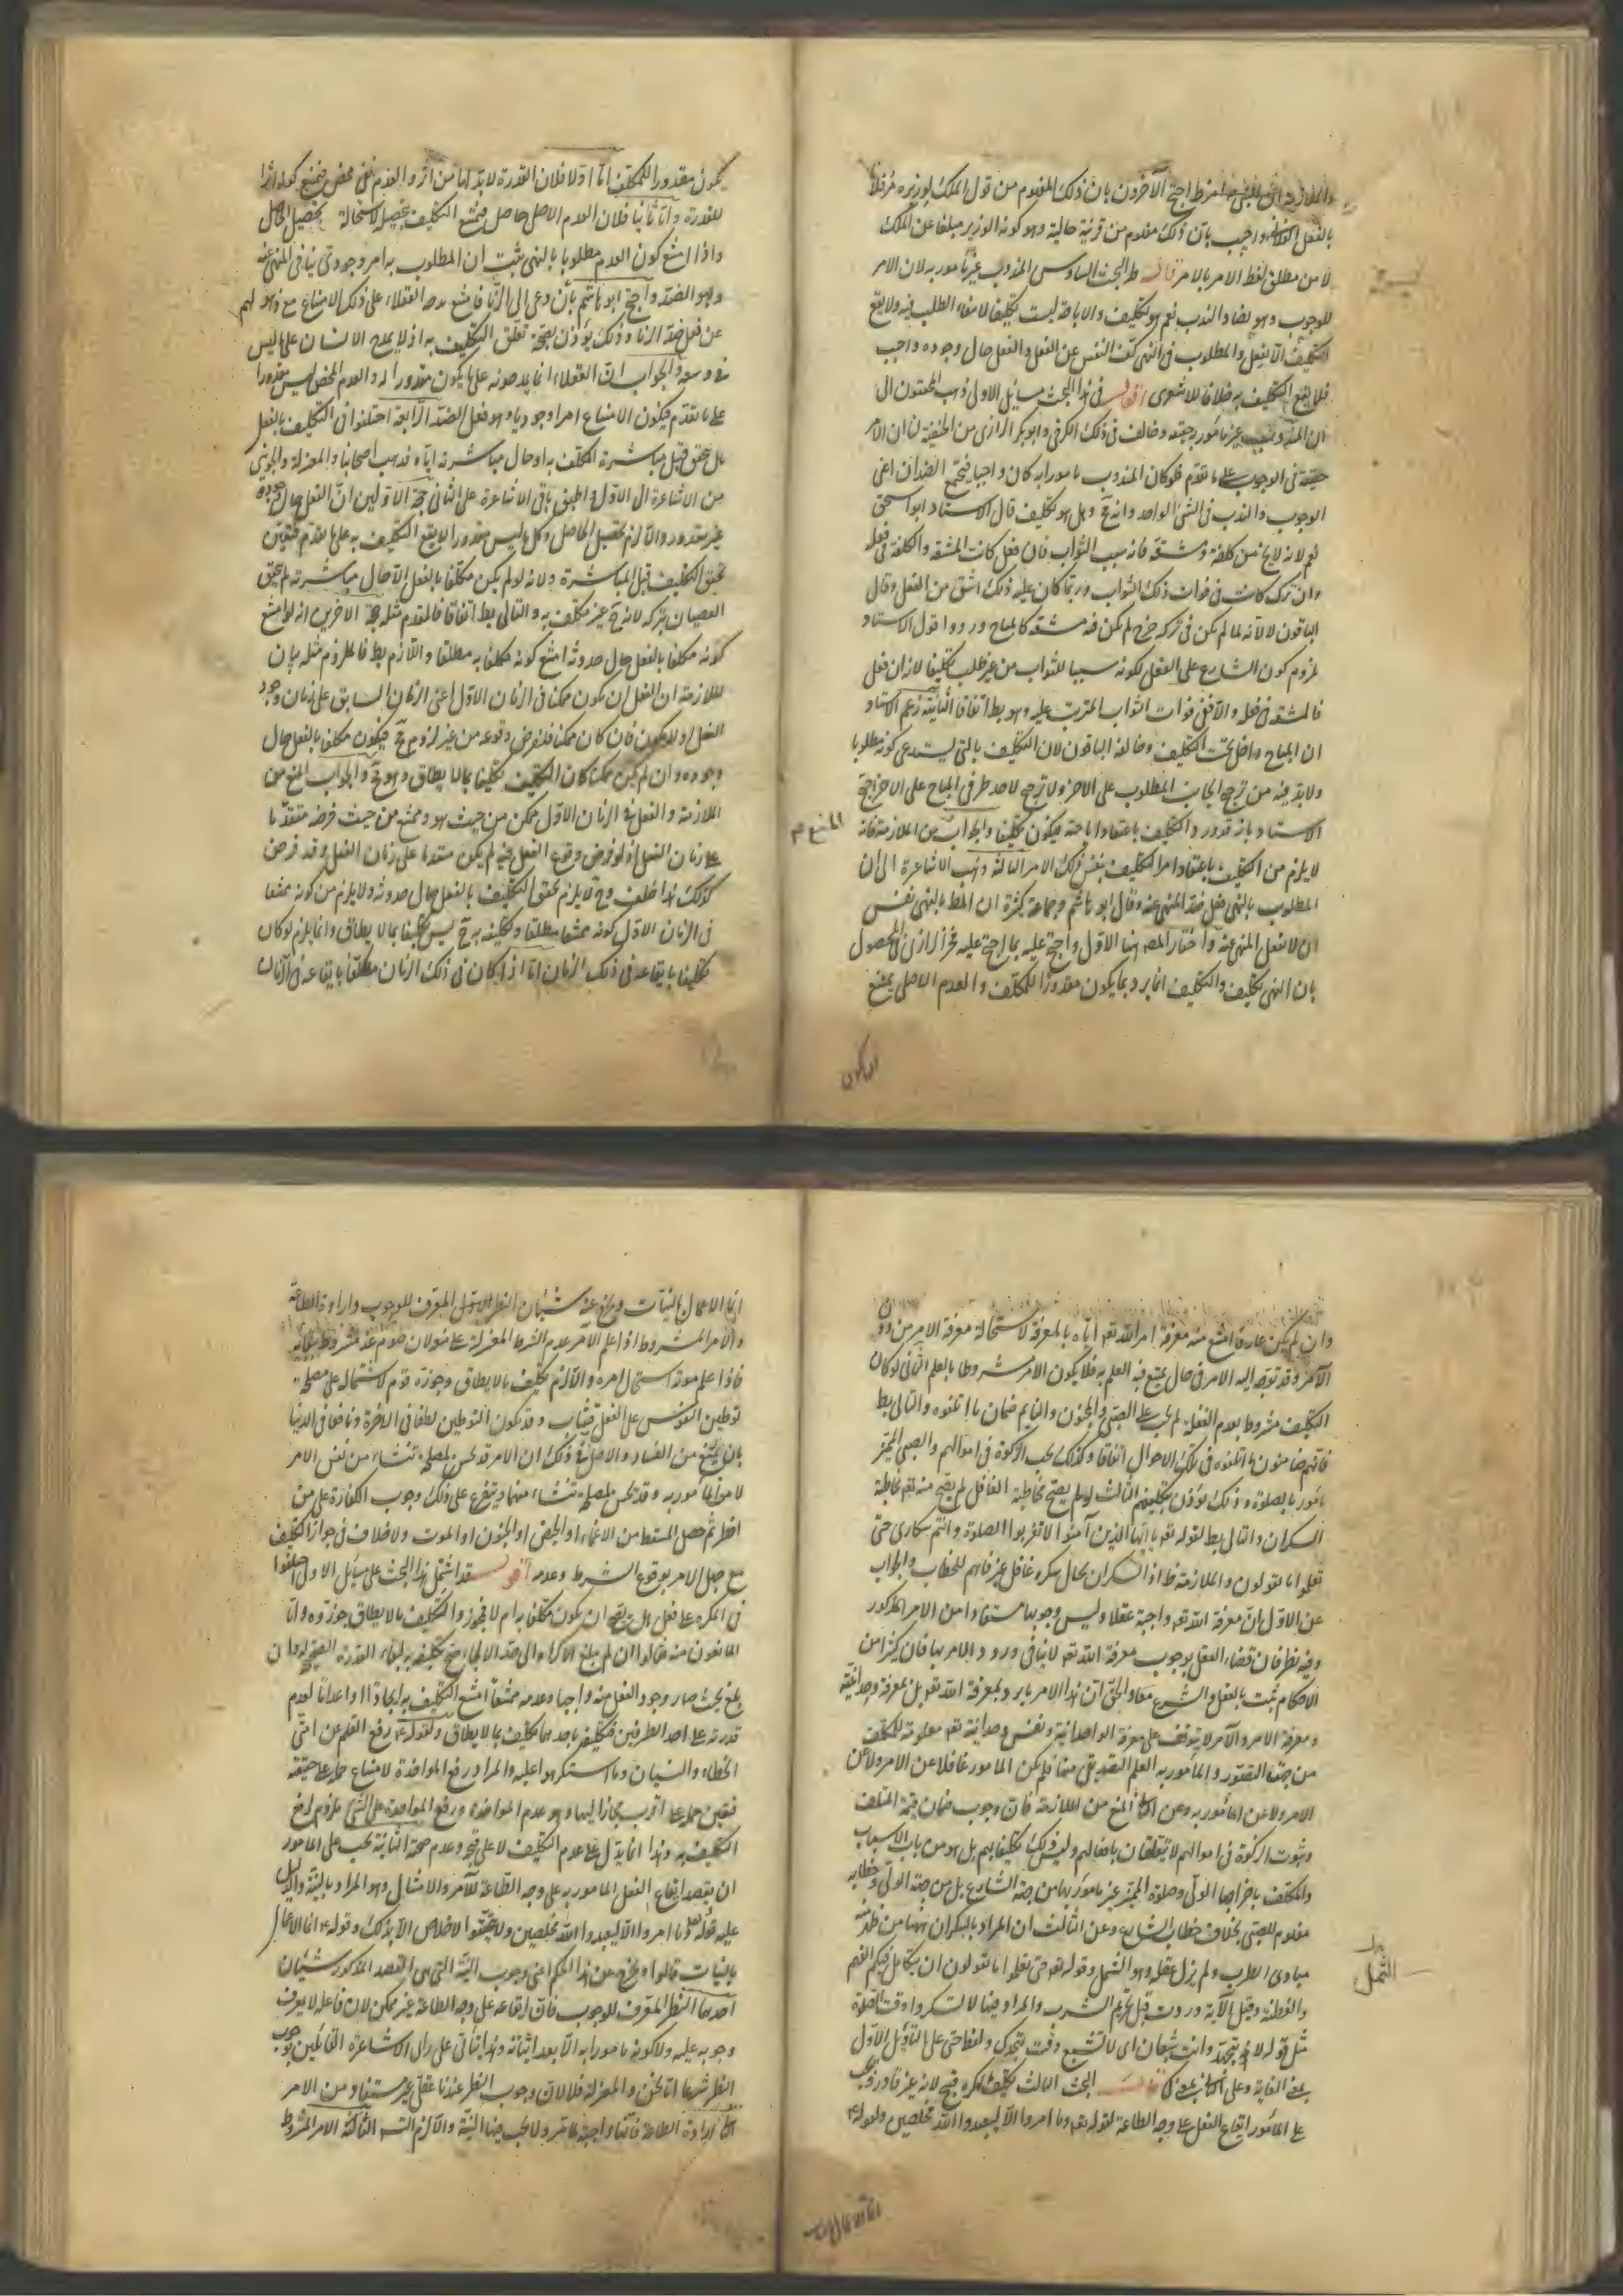 بالفعل واجيب بان ذلك مفهوم من قرينة حالية وهو كونه الوزير مبلغا عن الملك
لا من مطلق لفظ الامر بالامر قال البحث السادس المندوب غير مامور به لان الامر
للوجوب وهو يضاد الندب نعم هو تكليف والاباحة ليست تكليفا لانتفاء الطلب فيه ولا يقع
التكليف الا بفعل والمطلوب فى النهى كف النفس عن الفعل والفعل حال وجوده واجب
فلا يقع التكليف به خلافا للاشعرى اقول فى هذا البحث مسايل الاولى ذهب المحققون الى
ان المندوب غير مامور به حقيقة وخالف فى ذلك الكرخى وابو بكر الرازى من الحنفية لنا ان الامر
حقيقة فى الوجوب على ما تقدم فلو كان المندوب مامورا به كان واجبا فيجتمع الضدان اعنى
الوجوب والندب فى الشئ الواحد وانه مح وهل هو تكليف قال الاستاد ابو اسحق
نعم لانه لا يخ من كلفة ومشقة فانه سبب الثواب فان فعل كانت المشقة والكلفة فى فعله
وان ترك كانت فى فوات ذلك الثواب وربما كان عليه ذلك اشق من الفعل وقال
الباقون لا لانه لما لم يكن فى تركه حرج لم يكن فيه مشقة كالمباح وردوا قول الاستاد
بلزوم كون الشارع على الفعل لكونه سببا للثواب من غير طلب تكليفا لانه ان فعل
فالمشقة فى فعله والا ففى فوات الثواب المترتب عليه وهو بط اتفاقا الثانية زعم الاستاد
ان المباح داخل تحت التكليف وخالفه الباقون لان التكليف بالشئ يستدعى كونه مطلوبا
ولا بد فيه من ترجح الجانب المطلوب على الاخر ولا ترجح لاحد طرفى المباح على الاخر احتج
الاستاد بانه قد ورد التكليف باعتقاد اباحته فيكون تكليفا والجواب من الملازمة فانه
المنع م
لا يلزم من التكليف باعتقاد امر التكليف بنفس ذلك الامر الثالثة ذهب الاشاعرة الى ان
المطلوب بالنهى فعل ضد المنهى عنه وقال ابو هاشم وجماعة كثيرة ان المط بالنهى نفس
ان لا تفعل المنهى عنه واختار المصه هنا الاول واحتج عليه بما احتج عليه فخر الرازى فى المحصول
بان النهى تكليف والتكليف انما يرد بما يكون مقدورا للمكلف والعدم الاصلى يمتنع
ان يكون
يكون مقدورا للمكلف اما اولا فلان القدرة لا بد لها من اثر والعدم نفى محض فيمتنع كونه اثرا
للقدرة واما ثانيا فلان العدم الاصلى حاصل فيمتنع التكليف بتحصيله لاستحالة تحصيل الحاصل
واذا امتنع كون العدم مطلوبا بالنهى ثبت ان المطلوب به امر وجودى ينافى المنهى عنه
وهو الضد واحتج ابو هاشم بان من دعى الى الزنا فامتنع مدحه العقلاء على ذلك الامتناع مع ذهولهم
عن فعل ضد الزنا وذلك يؤذن بصحة تعلق التكليف به اذ لا يمدح الانسان على ما ليس
فى وسعه والجواب ان العقلاء انما يمدحونه على ما يكون مقدورا له والعدم المحض ليس مقدورا
على ما تقدم فيكون الامتناع امرا وجوديا وهو فعل الضد الرابعة اختلفوا فى التكليف بالفعل
هل يتحقق قبل مباشرة المكلف به او حال مباشرته اياه فذهب اصحابنا والمعتزلة والجوينى
من الاشاعرة الى الاول واطبق باقى الاشاعرة على الثانى حجة الاولين ان الفعل حال وجوده
غير مقدور والا لزم تحصيل الحاصل وكل ما ليس مقدورا لا يقع التكليف به على ما تقدم فتعين
تحقق التكليف قبل المباشرة ولانه لو لم يكن مكلفا بالفعل الا حال مباشرته لم يتحقق
العصيان بتركه لانه ح غير مكلف به والتالى بط اتفاقا فالمقدم مثله حجة الاخرين انه لو امتنع
كونه مكلفا بالفعل حال حدوثه امتنع كونه مكلفا به مطلقا واللازم بط فالملزوم مثله بيان
الملازمة ان الفعل ان يكون ممكنا فى الزمان الاول اعنى الزمان السابق على زمان وجود
الفعل اولا يكون فان كان ممكنا فلنفرض وقوعه من غير لزوم مح فيكون مكلفا بالفعل حال
وجوده وان لم يكن ممكنا كان التكليف تكليفا بما لا يطاق وهو مح والجواب المنع من
الملازمة والفعل فى الزمان الاول ممكن من حيث هو وممتنع من حيث فرضه متقدما
على زمان الفعل اذ لو فرض وقوع الفعل فيه لم يكن متقدما على زمان الفعل وقد فرض
كذلك هذا خلف وح لا يلزم تحقق التكليف بالفعل حال حدوثه ولا يلزم من كونه ممتنعا
فى الزمان الاول كونه ممتنعا مطلقا وتكليفه به ح ليس تكليفا بما لا يطاق وانما يلزم لو كان
تكليفا بايقاعه فى ذلك الزمان اما اذا كان فى ذلك الزمان مكلفا بايقاعه فى الزمان
وان لم يكن عارفا امتنع منه معرفة امر الله تعه اياه بالمعرفة لاستحالة معرفة الامر من دون
الآمر وقد توجه اليه الامر فى حال يمتنع فيه العلم به فلا يكون الامر مشروطا بالعلم الثانى لو كان
التكليف مشروطا بعدم الغفلة لم يجب على الصبى والمجنون والنايم ضمان ما اتلفوه والتالى بط
فانهم ضامنون لما اتلفوه فى تلك الاحوال اتفاقا وكذلك يجب الزكوة فى اموالهم والصبى المميز
مامور بالصلوة وذلك يؤذن بتكليفهم الثالث لو لم يصح مخاطبة الغافل لم يصح منه تعه مخاطبة
السكران والتالى بط لقوله تعه يا ايها الذين آمنوا لا تقربوا الصلوة وانتم سكارى حتى
تعلموا ما تقولون والملازمة ظ اذ السكران بحال سكره غافل غير فاهم للخطاب والجواب
عن الاول ان معرفة الله تعه واجبة عقلا وليس وجوبها مستفادا من الامر المذكور
وفيه نظر فان قضاء العقل بوجوب معرفة الله تعه لا ينافى ورود الامر بها فان كثيرا من
الاحكام ثبت بالعقل والشرع معا والحق ان هذا الامر بامر وبمعرفة الله تعه بل بمعرفة وحدانيته
ومعرفة الامر والآمر لا يتوقف على معرفة الواحدانية ونفس وحدانية تعه معلومة للمكلف
من حيث التصور والمامور به العلم التصديقى فلم يكن المامور غافلا عن الامر ولا عن
الامر ولا عن المامور به وعن الثانى المنع من الملازمة فان وجوب ضمان قيمة المتلف
وثبوت الزكوة فى اموالهم لا يتعلقان بافعالهم وليس ذلك تكليفا لهم بل هو من باب الاسباب
والمكلف باخراجها الولى وصلوة المميز غير مامور بها من جهة الشارع بل من جهة الولى وخطابه
مفهوم للصبى بخلاف خطاب الشارع وعن الثالث ان المراد بالسكران ههنا من ظهر منه
مبادى الطرب ولم يزل عقله وهو الثمل وقوله تعه حتى تعلموا ما تقولون ان يتكامل فيكم الفهم
الثمل
والفطنة وقيل الآية وردت قبل تحريم الشرب والمراد منها لا تسكروا وقت الصلوة
مثل قوله لا تتهجد وانت شبعان اى لا تشبع وقت تهجدك ولفظ حتى على التاويل الاول
بمعنى الغاية وعلى الثانى بمعنى كى قال البحث الثالث تكليف المكره قبيح لانه غير قادر ويجب
على المامور ايقاع الفعل على وجه الطاعة لقوله تعه وما امروا الا ليعبدوا الله مخلصين ولقوله ع
انما الاعمال بالنيات
انما الاعمال بالنيات ويخرج عنه شيئان النظر الاول المعرف للوجوب وارادة الطاعة
والامر المشروط اذا علم الآمر عدم الشرط
فاذا علم موته استحال امره والا لزم تكليف ما لا يطاق وجوزه قوم لاشتماله على مصلحة
توطين النفس على الفعل فيثاب وقد يكون التوطين لطفا فى الاخرة ونافعا فى الدنيا
بان يمتنع من الفساد والاصل فى ذلك ان الامر قد يحسن لمصلحة تنشاء من نفس الامر
لا من المامور به وقد يحسن لمصلحة تنشاء منهما ويتفرع على ذلك وجوب الكفارة على من
افطر ثم حصل المسقط من الاغماء او الحيض او الجنون او الموت ولا خلاف فى جواز التكليف
مع جهل الامر بوقوع الشرط وعدمه اقول قد اشتمل هذا البحث على مسايل الاولى اختلفوا
فى المكره على فعل هل يصح ان يكون مكلفا به ام لا فمجوزوا التكليف بما لا يطاق جوزوه واما
المانعون منه فقالوا ان لم يبلغ الاكراه الى حد الالجاء صح تكليفه به لبقاء القدرة المصححة له وان
بلغ بحيث صار وجود الفعل منه واجبا وعدمه ممتنعا امتنع التكليف به ايجادا واعداما لعدم
قدرته على احد الطرفين فتكليفه باحدهما تكليف بما لا يطاق ولقوله ع رفع القلم عن امتى
الخطاء والنسيان وما استكرهوا عليه والمراد رفع المواخذة لامتناع حمله على حقيقته
فتعين حمله على اقرب مجازا اليها وهو عدم المواخذة ورفع المواخذة على الشئ ملزوم لرفع
التكليف به وهذا انما يدل على عدم التكليف لا على قبحه وعدم صحته الثانية يجب على المامور
ان يقصد ايقاع الفعل المامور به على وجه الطاعة للآمر والامتثال وهو المراد بالنية والدليل
عليه قوله تعه وما امروا الا ليعبدوا الله مخلصين ولا يتحقق الاخلاص الا بذلك وقوله ع انما الاعمال
بالنيات قالوا ويخرج من هذا الحكم اعنى وجوب النية التى هى القصد المذكور شيئان
احدهما النظر المعرف للوجوب فان ايقاعه على وجه الطاعة غير ممكن لان فاعله لا يعرف
وجوبه عليه ولا كونه مامورا به الا بعد اتيانه وهذا ياتى على راى الاشاعرة القائلين بوجوب
النظر شرعا اما نحن والمعتزلة فلا لان وجوب النظر عندنا عقلى غير مستفاد من الامر
الثانى ارادة الطاعة فانها واجبة ولا يجب فيها النية والا لزم التسه الثالثة الامر المشروط